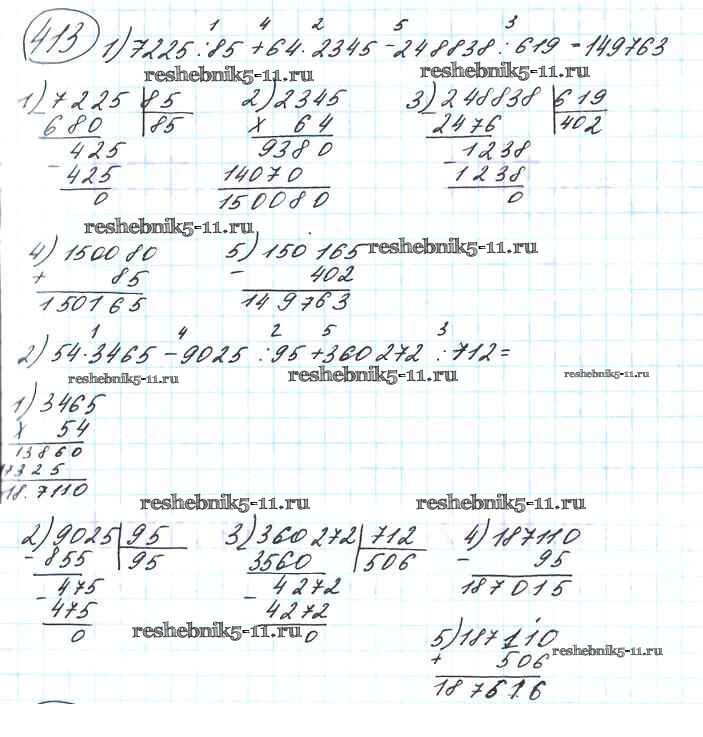 413
1 4 2 5 3
1) 7225 : 85 + 64 · 2345 - 248838 : 619 = 149763
reshebnik5-11.ru reshebnik5-11.ru
1) 7225 85 2) 2345 3) 248838 619
- 680 85 x 64 - 2476 402
425 9380 - 1238
- 425 14070 1238
0 150080 0
reshebnik5-11.ru
4) 150080 5) 150165 reshebnik5-11.ru
+ 85 - 402
150165 149763
1 4 2 5 3
2) 54 · 3465 - 9025 : 95 + 360272 : 712 =
reshebnik5-11.ru reshebnik5-11.ru reshebnik5-11.ru
1) 3465
x 54
13860
17325
18.7110
reshebnik5-11.ru reshebnik5-11.ru
2) 9025 95 3) 360272 712 4) 187110
- 855 95 3560 506 - 95
- 475 - 4272 187015
475 4272
0 0
reshebnik5-11.ru
5) 187110 reshebnik5-11.ru
+ 506
187616